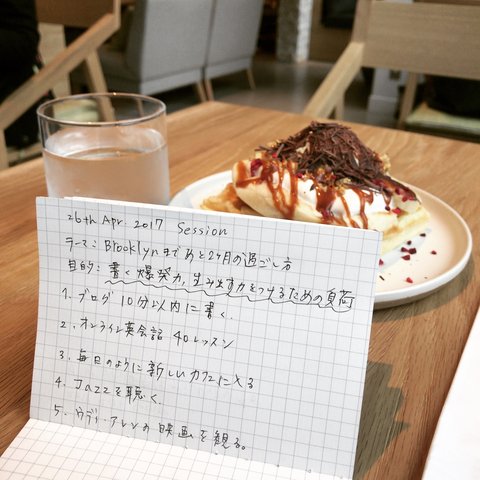 26th Apr. 2017 Session
テーマ: Brooklynまであと2ヶ月の過ごし方
目的: 書く爆発力、生み出す力をつけるための負荷
1. ブログ10分以内に書く.
2. オンライン英会話 40レッスン
3. 毎日のように新しいカフェに入る
4. Jazzを聴く.
5. ウディ・アレンの映画を観る。